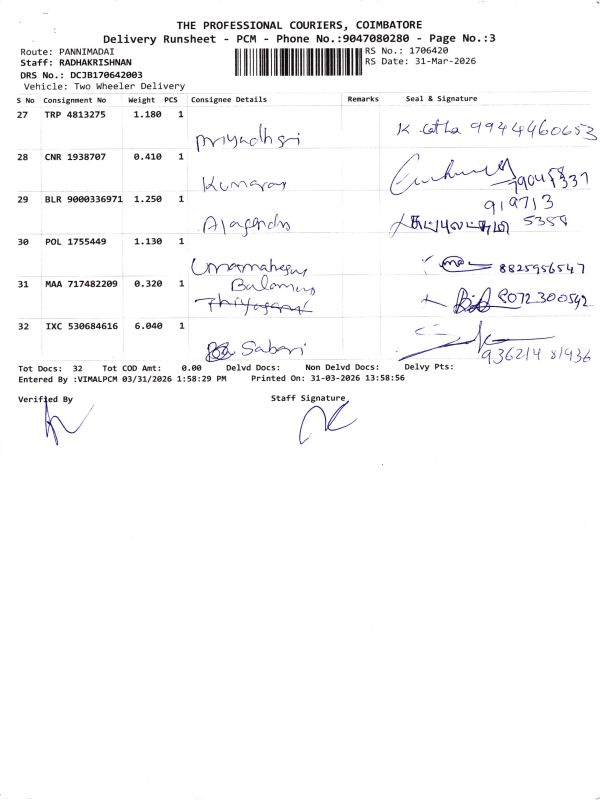 THE PROFESSIONAL COURIERS, COIMBATORE
Delivery Runsheet - PCM - Phone No.:9047080280 - Page No.:3
Route: PANNIMADAI
RS No.: 1706420
Staff: RADHAKRISHNAN
RS Date: 31-Mar-2026
DRS No.: DCJB170642003
Vehicle: Two Wheeler Delivery
S No Consignment No Weight PCS Consignee Details Remarks Seal & Signature
27 TRP 4813275 1.180 1
Priyadhsri K 9944460653
28 CNR 1938707 0.410 1
Kumaran
29 BLR 9000336971 1.250 1
919713
5358
30 POL 1755449 1.130 1
8825956547
31 MAA 717482209 0.320 1
9072300592
32 IXC 530684616 6.040 1
Sabari
Tot Docs: 32 Tot COD Amt: 0.00 Delvd Docs: Non Delvd Docs: Delvy Pts:
Entered By :VIMALPCM 03/31/2026 1:58:29 PM Printed On: 31-03-2026 13:58:56
Verified By Staff Signature